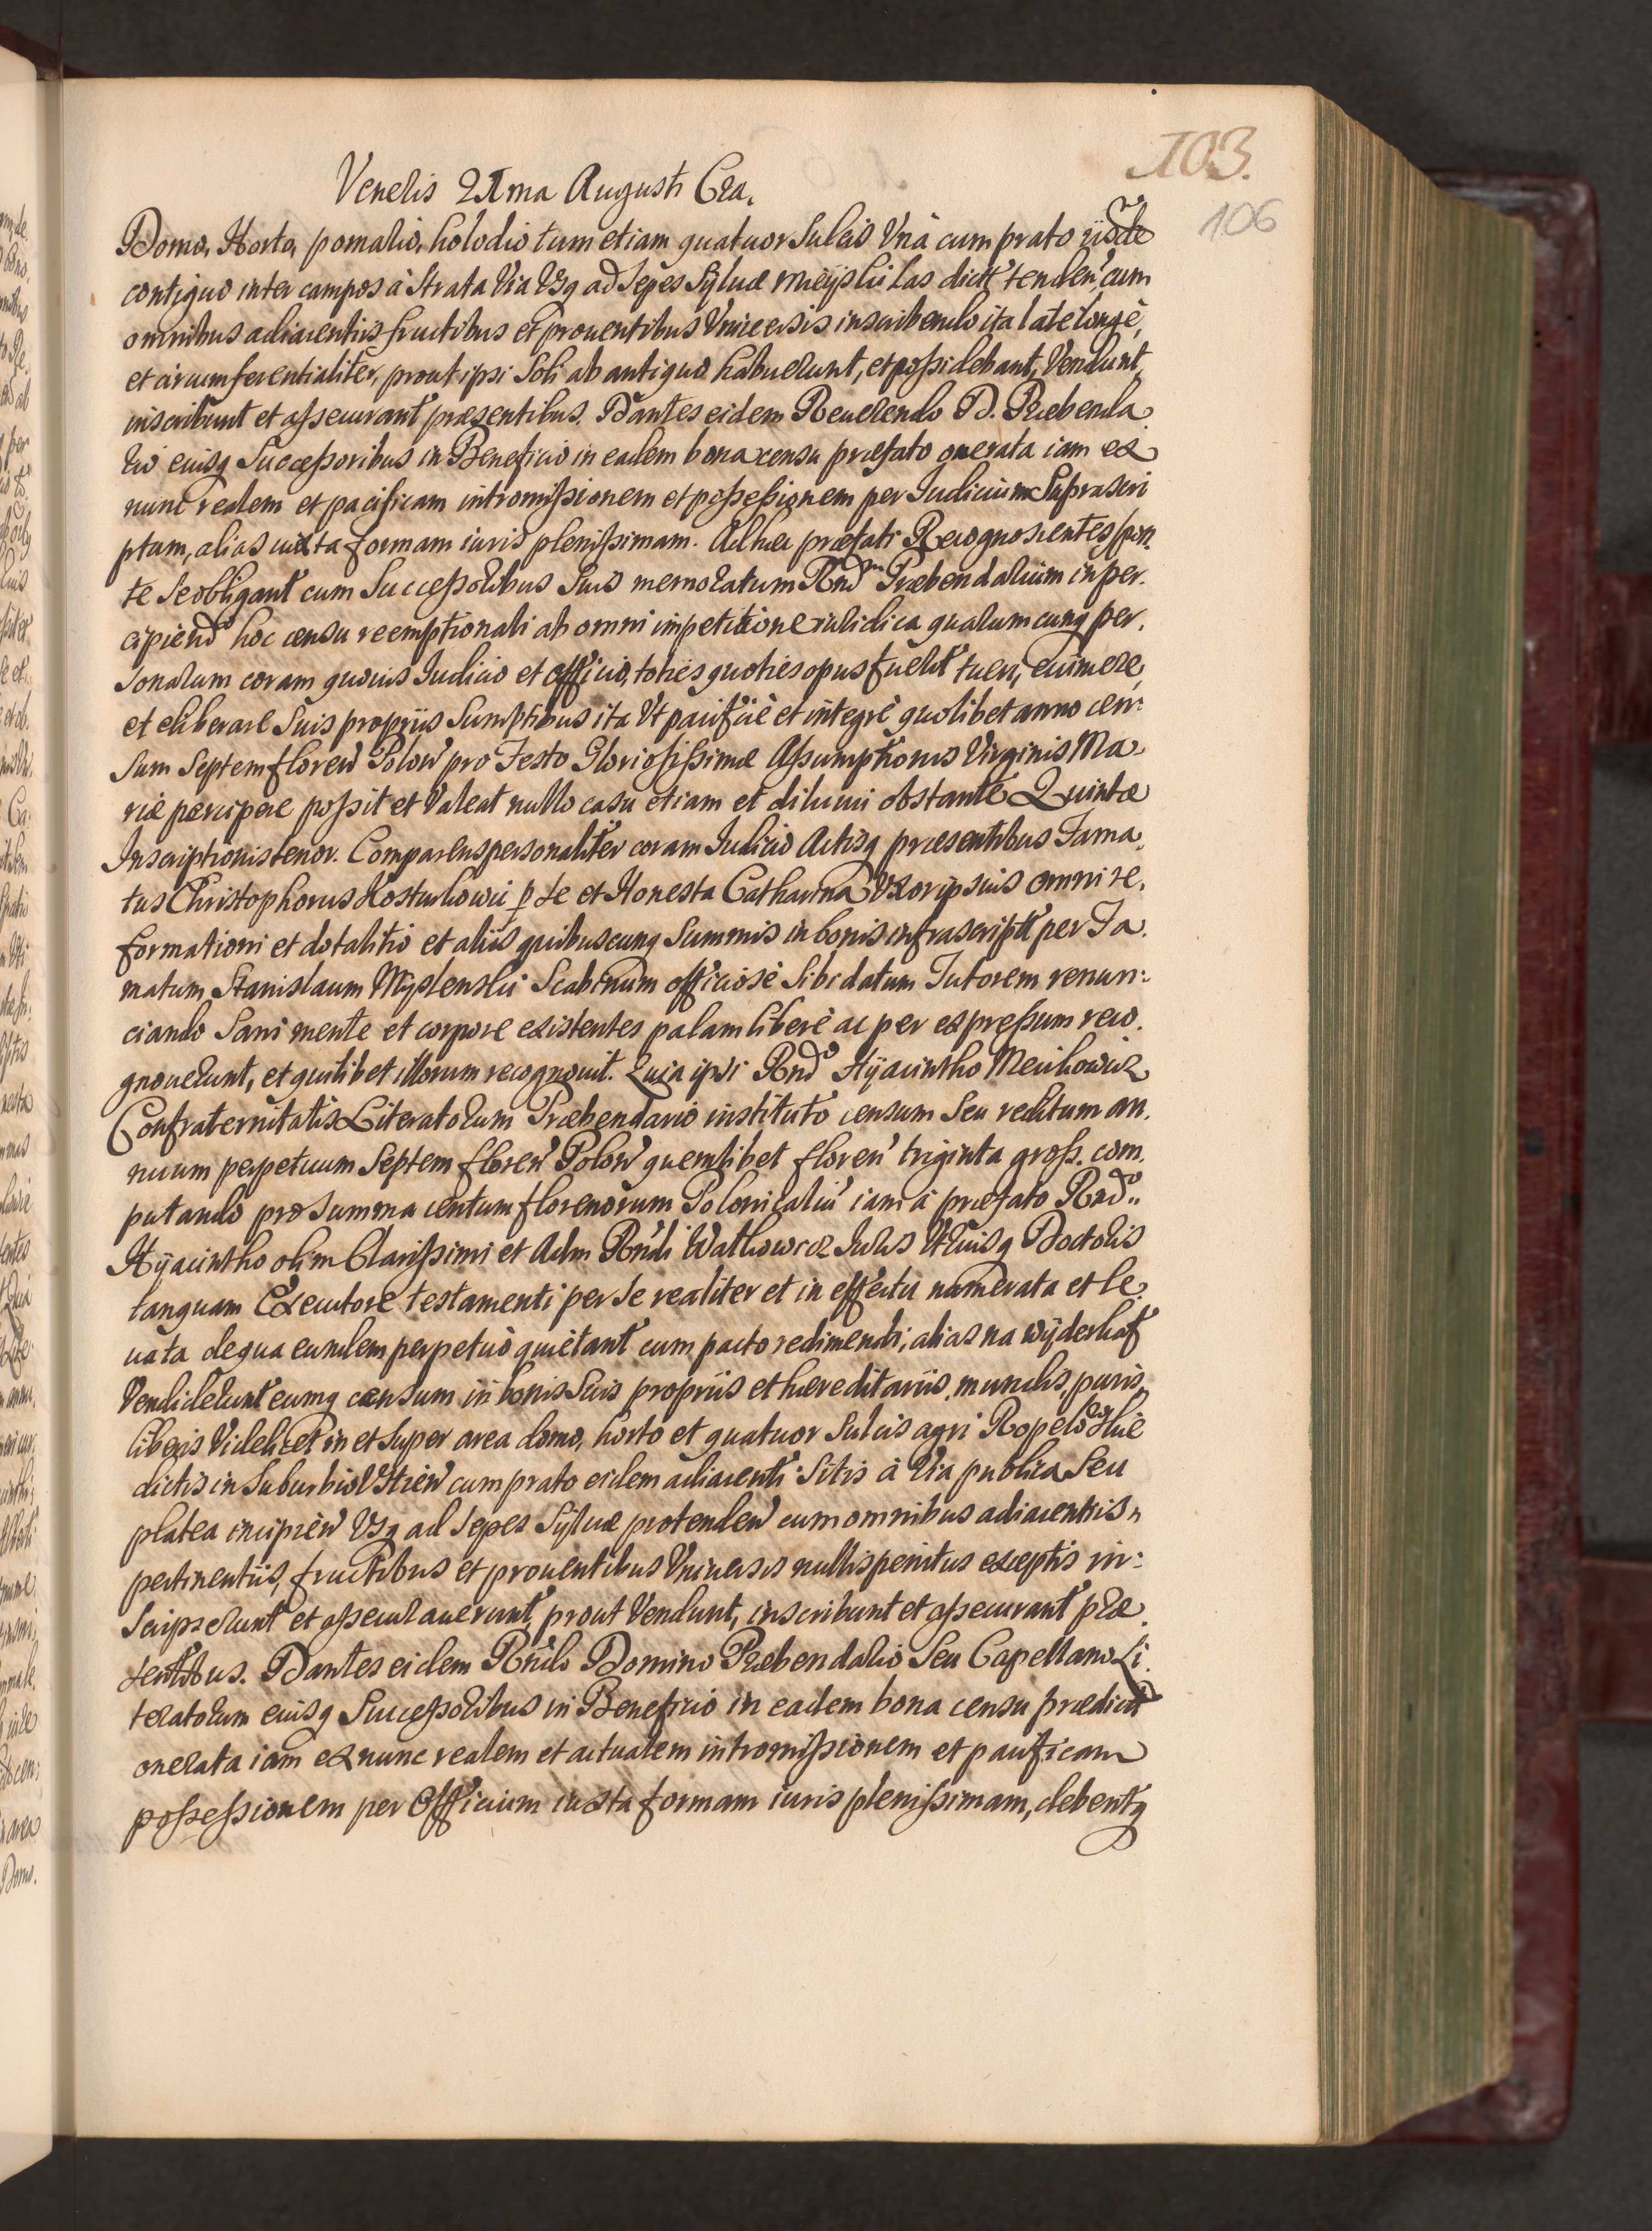 103.
106
Veneris 21ma Augusti Cra.
Domo, Horto, pomario, holodio tum etiam quatuor Sulcis Vnà cum prato iisdẽ
contiguo inter campos à Strata Via Vsq ad Sepes Syluæ Meÿski Las dict' tenden', cum
omnibus adiacentiis fructibus et prouentibus Vniuersis inscribendo ita latè longè,
et circumferentialiter, prout ipsi Soli ab antiquo habuerunt, et possidebant, Vendunt,
inscribunt et assecurant præsentibus. Dantes eidem Reuerendo D. Præbenda
rio eiusq Successoribus in Beneficio in eadem bona censu præfato onerata iam ex
nunc realem et pacificam intromissionem et possessionem per Iudicium Suprascri
ptum, alias iuxta formam iuris plenissimam. Adhæc præfati Recognoscentes spon
te Se obligant cum Successoribus Suis memoratum Rndm Præbendarium in per.
cipiend' hoc censu reemptionali ab omni impetitione iuridica qualumcunq per.
sonarum coram quouis Iudicio et officio, toties quoties opus fuerit tueri, euincere,
et eliberare Suis proprÿs Sumptibus ita Vt pacificè et integrè quolibet anno cen:
sum Septem floren' Polon' pro Festo Gloriosissimæ Assumptionis Virginis Ma
riæ percipere possit et Valeat nullo casu etiam et diluuii obstante Quintæ
Inscriptionis tenor. Comparens personaliter coram Iudicio Actisq præsentibus Fama.
tus Christophorus Kosturkowic p se et Honesta Catharina Vxor ipsius omni re.
formationi et dotalitio et aliis quibuscunq Summis in bonis infrascript' per Fa.
matum Stanislaum Myslenski Scabinum officiosè Sibi datum Tutorem renun:
ciando Sani mente et corpore existentes palam liberè ac per expressum reco.
gnouerunt, et quilibet illorum recognouit. Quia ipsi Rndo Hÿacintho Meickowicz
Confraternitatis Literatorum Præbendario instituto censum Seu reditum an.
nuum perpetuum Septem floren' Polon' quemlibet floren' triginta gross. com.
putando pro Summa centum florenorum Polonicaliũ iam à præfato Rndo
Hÿacintho olim Clarissimi et Adm Rndi Walkowicz Iuris Vtriusq Doctoris
tanquam Executore testamenti per se realiter et in effectu numerata et le
uata de qua eundem perpetuò quietant cum pacto redimendi, alias na wÿderkaf
Vendiderunt eumq censum in bonis Suis propriis et hæreditariis, mundis, puris,
liberis Videlicet in et Super area domo, horto et quatuor Sulcis agri Ropelowskiè
dictis in Suburbio Vstrien' cum prato eidem adiacenti Sitis à Via publica Seu
platea incipien' Vsq ad Sepes Syluæ protenden' cum omnibus adiacentiis
pertinentiis, fructibus et prouentibus Vniuersis nullis penitus exceptis in:
scripserunt et assecurauerunt, prout Vendunt, inscribunt et assecurant præ
sentibus. Dantes eidem Rndo Domino Præbendario Seu Capellano Li
teratorum eiusq Successoribus in Beneficio in eadem bona censu prædicto
onerata iam ex nunc realem et actualem intromissionem et pacificam
possessionem per Officium iuxta formam iuris plenissimam, debentq